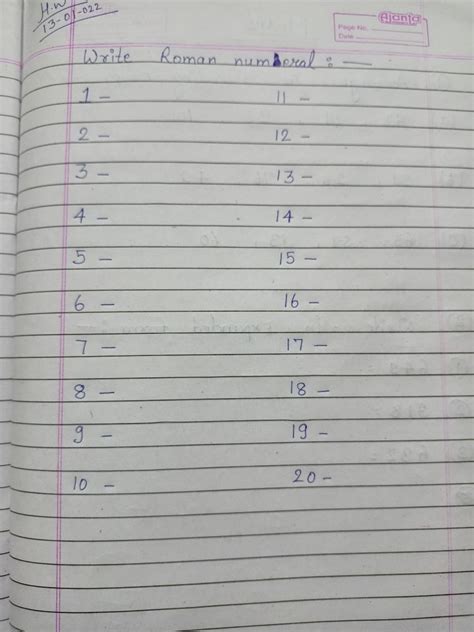 H.W
13-01-022
Ajanta
Page No.
Date
Write Roman numberal :—
1 – 11 –
2 – 12 –
3 – 13 –
4 – 14 –
5 – 15 –
6 – 16 –
7 – 17 –
8 – 18 –
9 – 19 –
10 – 20 –